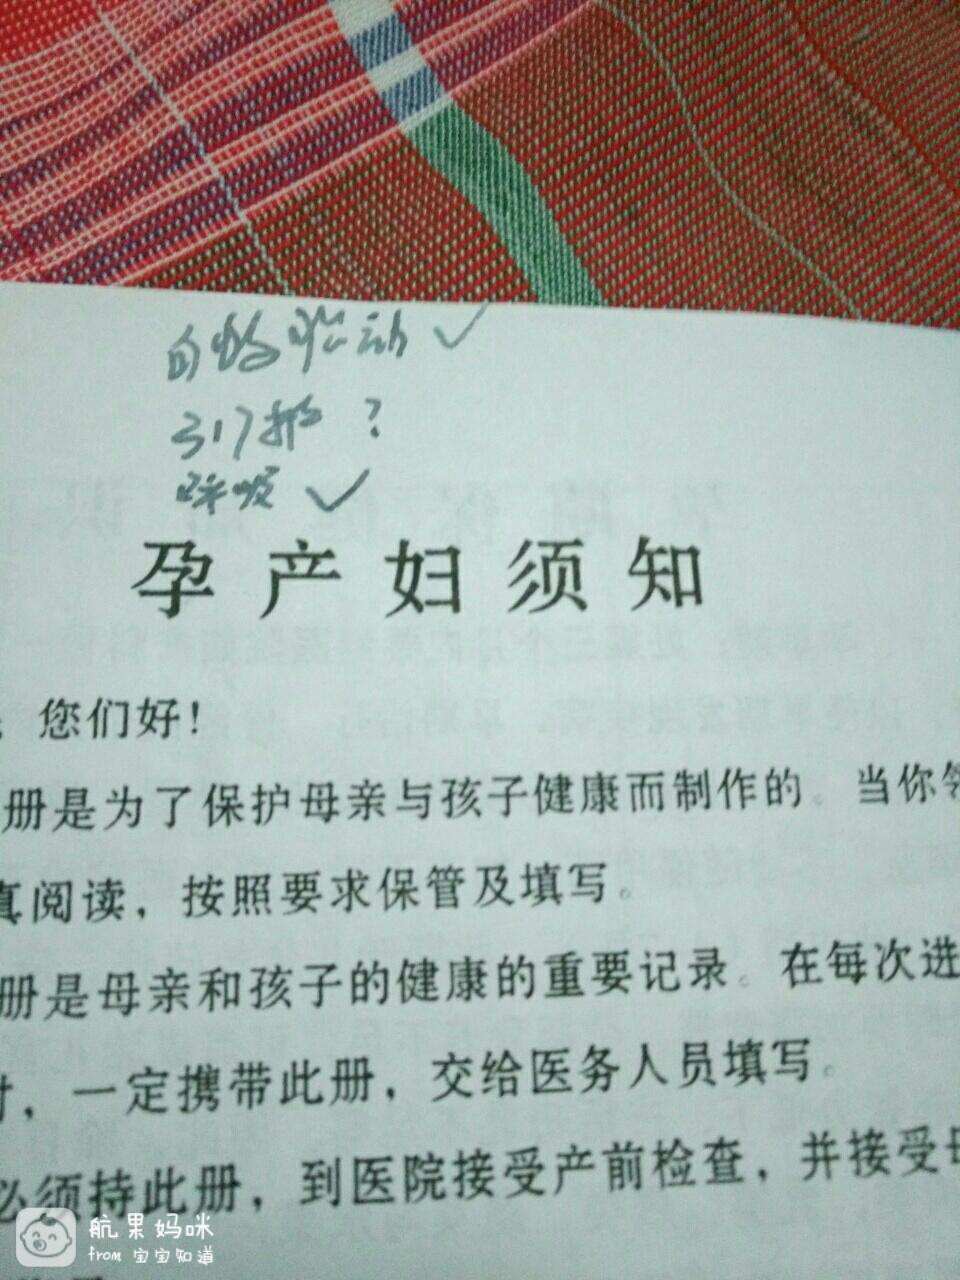 自数胎动 ✓
?
✓
孕产妇须知
您们好!
册是为了保护母亲与孩子健康而制作的。当你领
真阅读，按照要求保管及填写。
册是母亲和孩子的健康的重要记录。在每次进
时，一定携带此册，交给医务人员填写。
必须持此册，到医院接受产前检查，并接受母
航果妈咪
from 宝宝知道